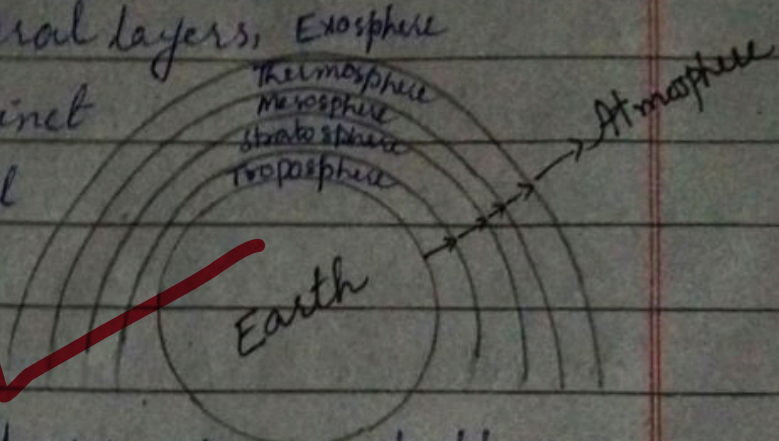 layers, Exosphere
Thermosphere
Mesosphere
Stratosphere
Troposphere
Atmosphere
Earth